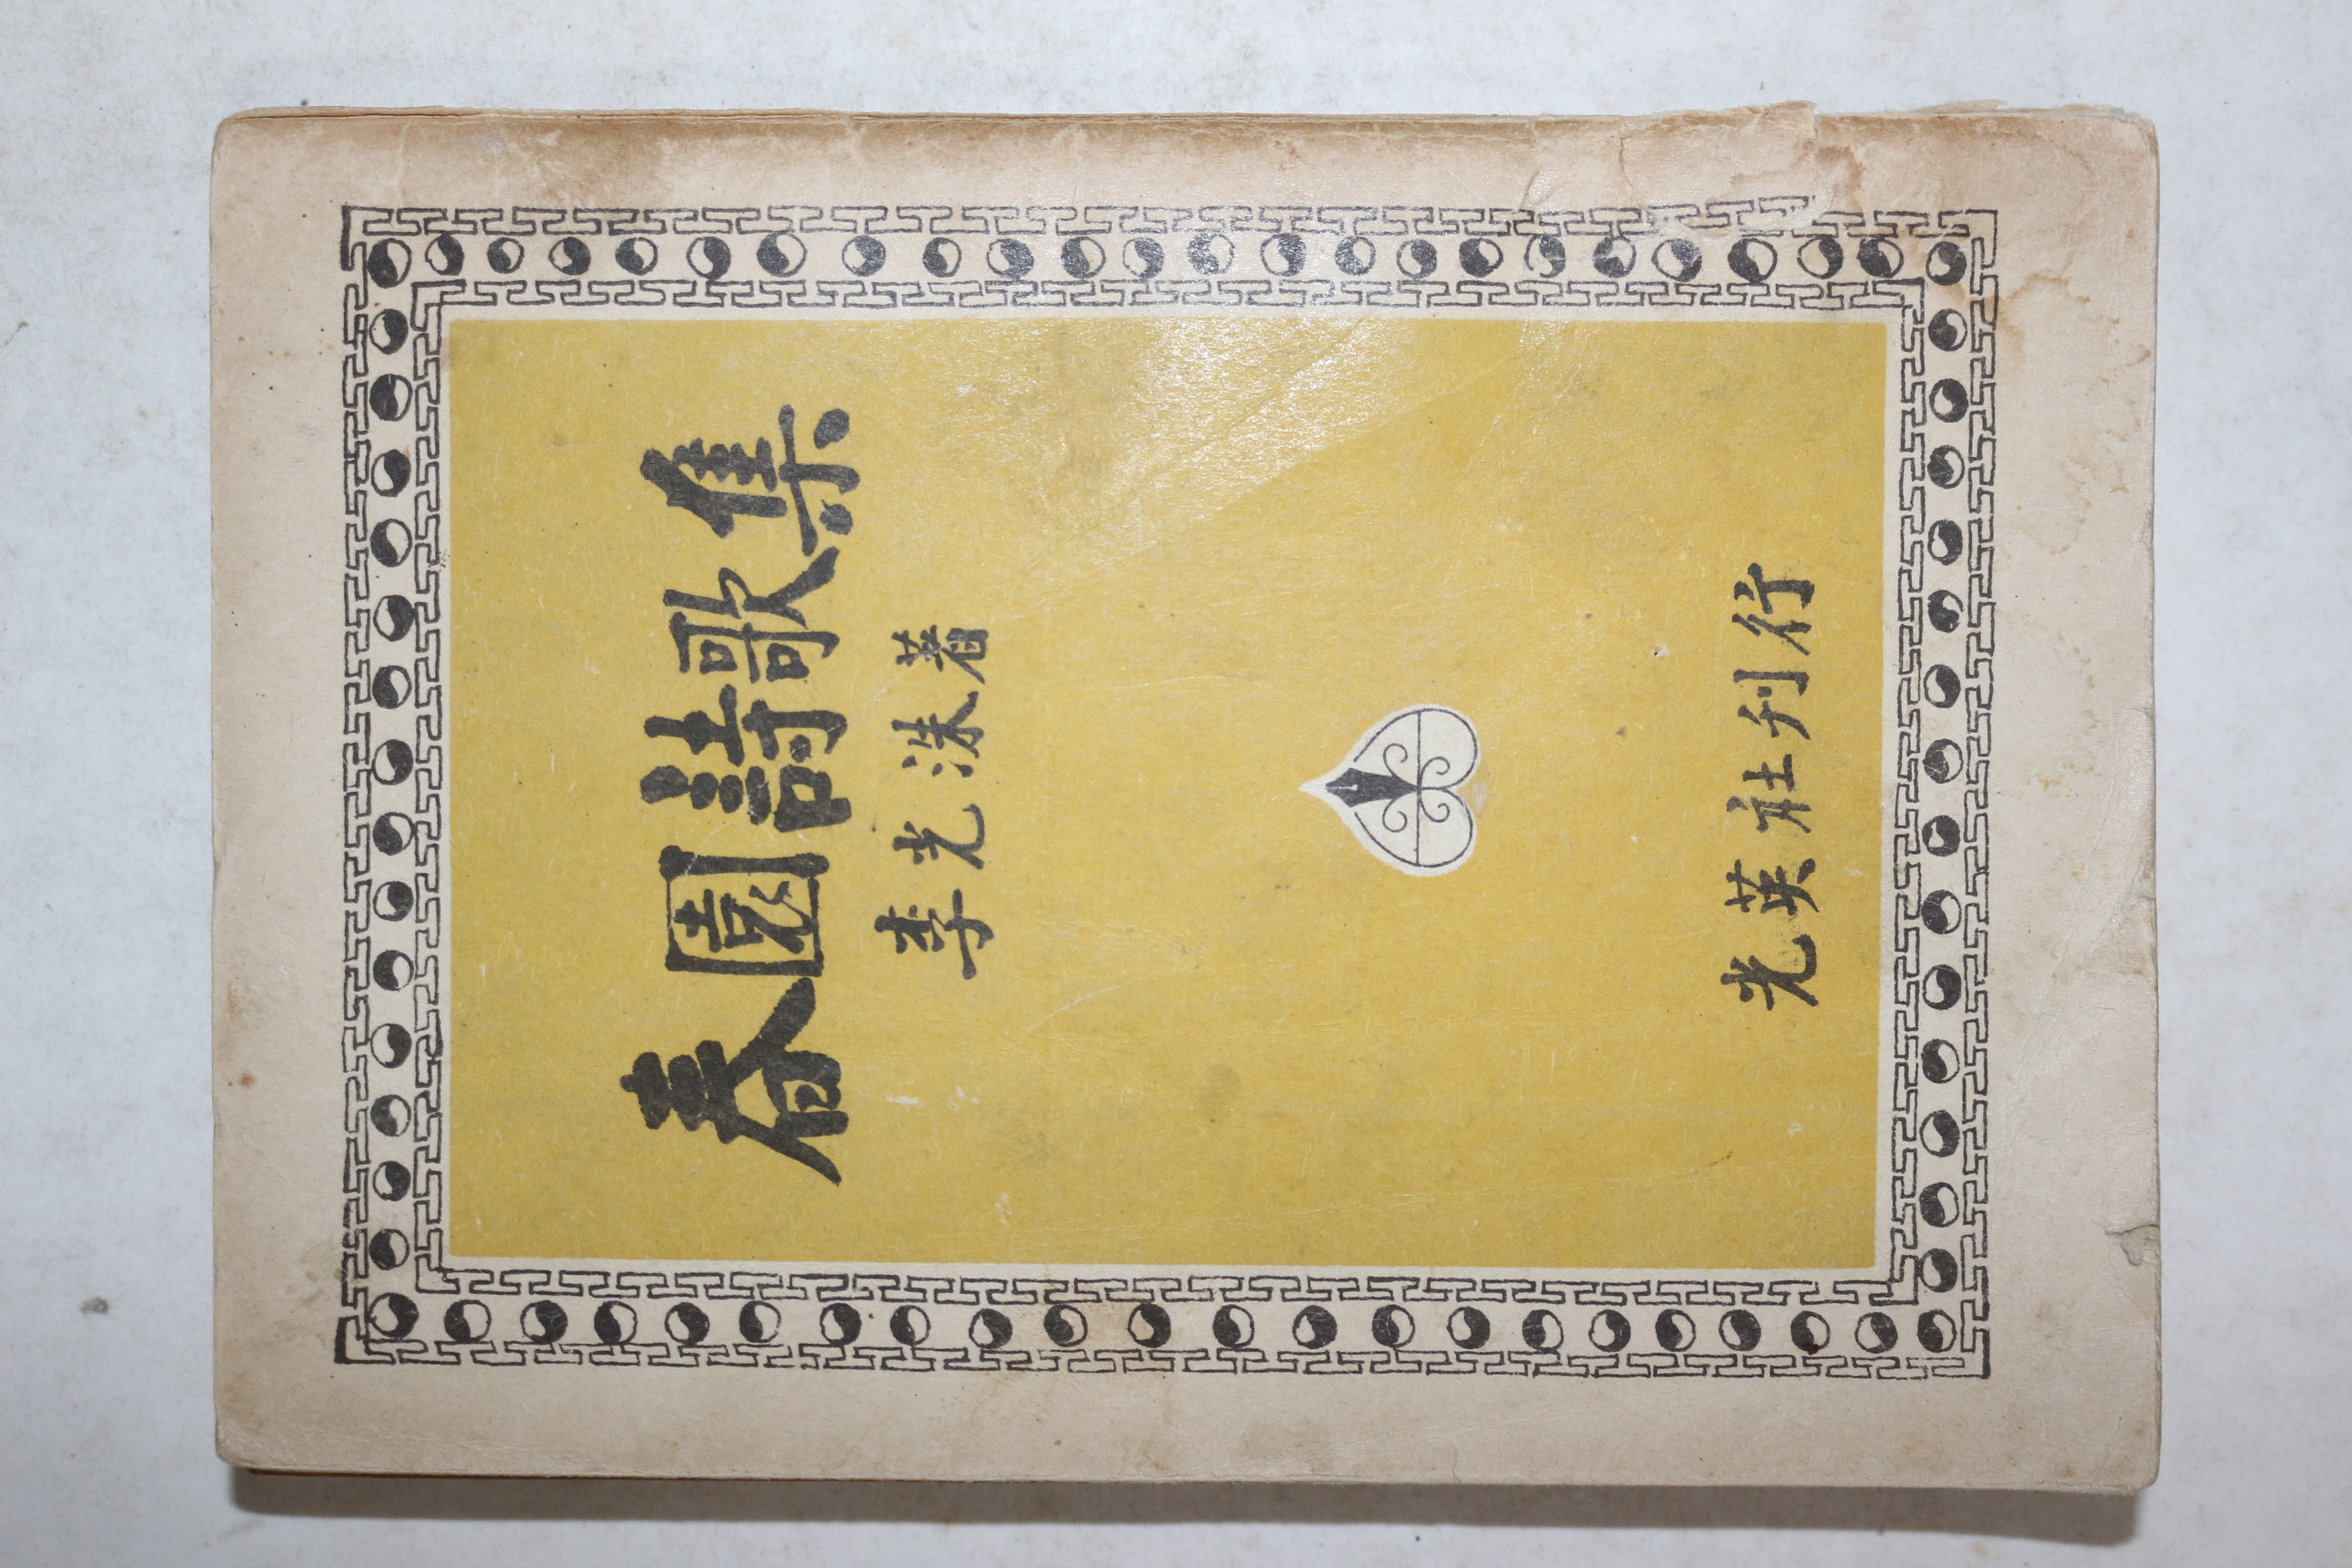 春園詩歌集
李光洙著
光英社刊行